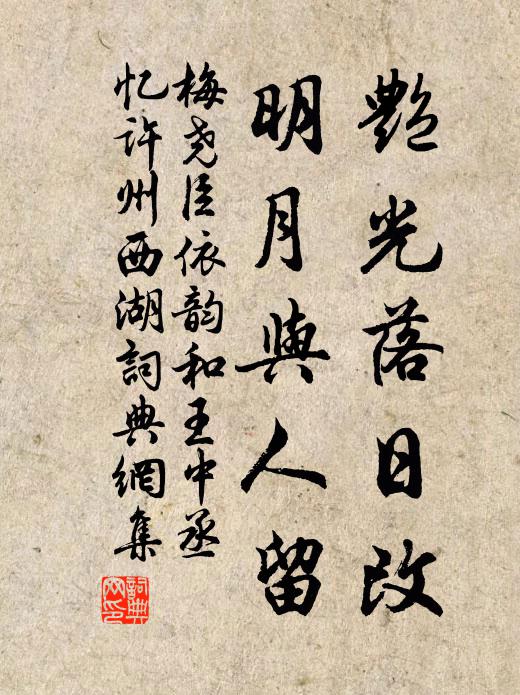 艷光落日改
明月與人留
梅堯臣依韵和王中丞
忆许州西湖詞典網集
詞典
网印